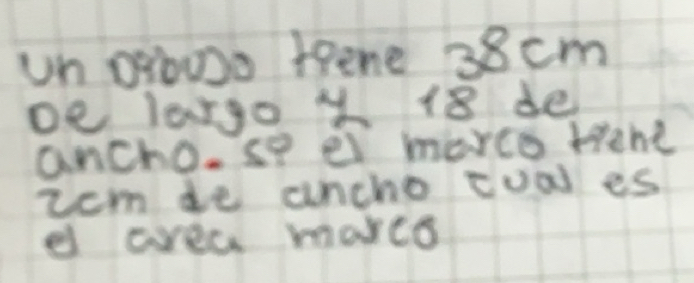 un dibujo tiene 38cm
De largo y 18 de
ancho. si el marco tiene
2cm de ancho cual es
el area marco